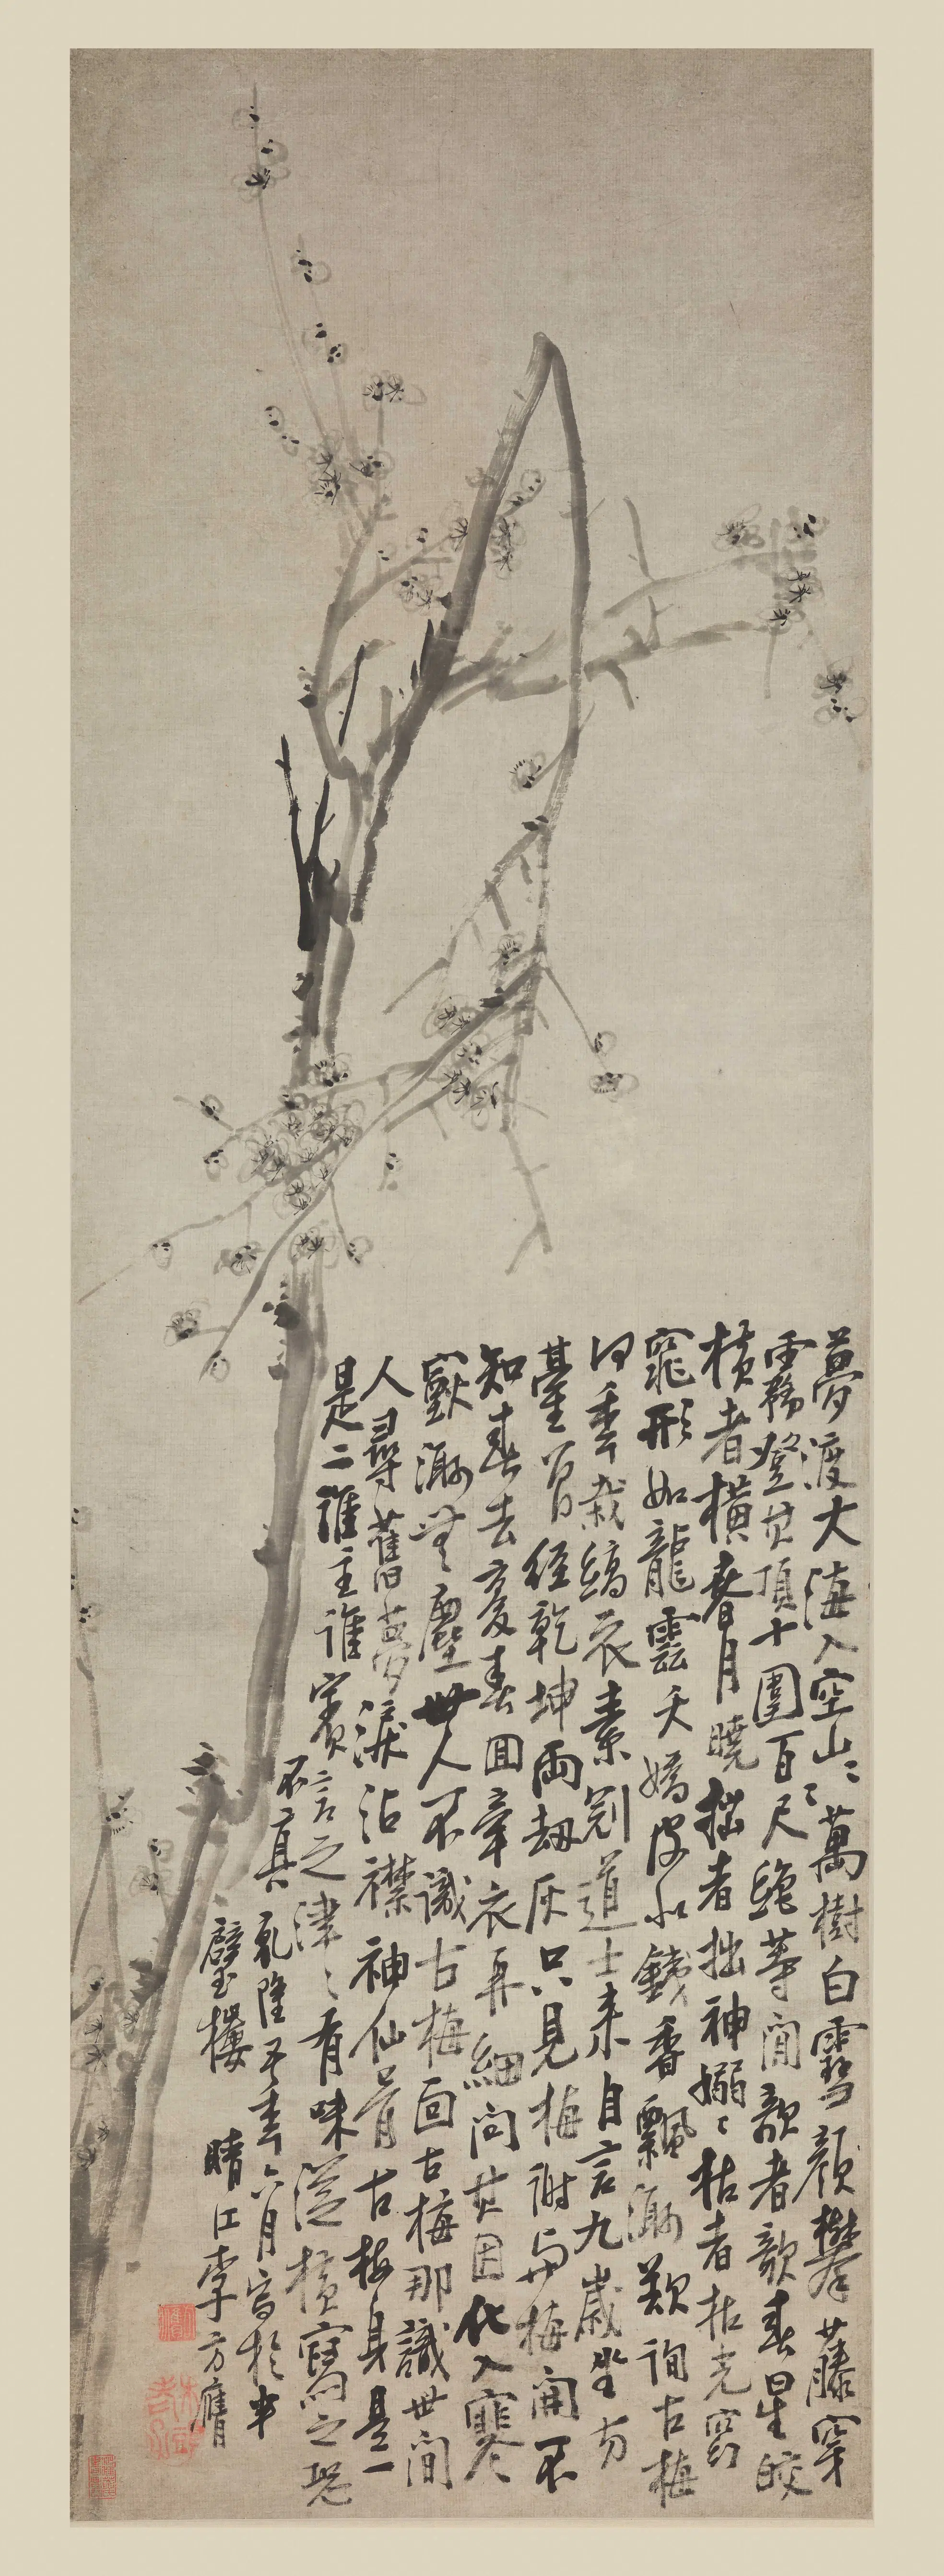 夢渡大海入空山〻〻萬樹白雪顔攀藤穿
霧登其頂十圍百尺絶等閒欹者欹春星皎
橫者橫春月曉拙者拙神嫋〻枯者枯光窈
窕形如龍雲夭矯皮如鐵香飄渺歎詢古梅
何年栽縞衣素冠道士來自言九歲坐方
臺百經乾坤兩劫灰只見梅謝與梅開不
知春去更春回牽衣再細問其因化入寥
渺無塵世人不識古梅面古梅那識世間
人尋舊夢淚沾襟神仙骨古梅身是一
是二誰主誰賓言之津〻有味縱橫寫之恐
不真乾隆五年六月寫於半
壁樓晴江李方膺